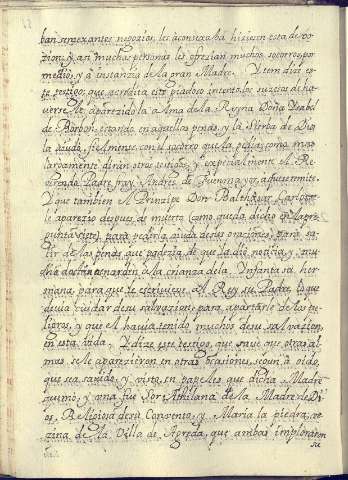 ban semexantes negozios, les aconsexaba hiziesen esta devo-
zion, y asi muchas personas les ofrezian muchos socorros por
medio, y a instanzia de la gran Madre. Y tem dice es-
te testigo; que acredita este piadoso intento los suzesos de ha-
verse aparezido la Alma de la Reyna Doña Ysabel
de Borbon, estando en aquellas penas, y la Sierba de Dios
la ayudo, fielmente, con el socorro que la pedia; como mas
largamente diran otros testigos, y especialmente el Re-
verendo Padre fray Andres de Fuenmayor, a que se remite.
Y que tambien el Prinzipe Don Balthasar Carlos
le aparezio despues de muerto (como queda dicho en la pre-
gunta siete) para pedirla ayuda de sus oraciones, para sa-
lir de las penas que padezia de que la dio noticia, y mu-
cha en la crianza de la Infanta su her-
mana, para que se escriviese al Rey su Padre, lo que
devia cuidar de su salvazion, para apartarle de los pe-
ligros, y que el havia tenido muchos de su salvazion,
en esta vida. Y dize este testigo, que save que otras al-
mas se le aparezieron en otras ocasiones, segun a oido,
que sea savido, y visto, en papeles que dicha Madre
y una fue Sor Athilana de la Madre de Di-
os, Religiosa de su Convento, y Maria la piedra, ve-
zina de la Villa de Agreda, que ambas imploraron
su